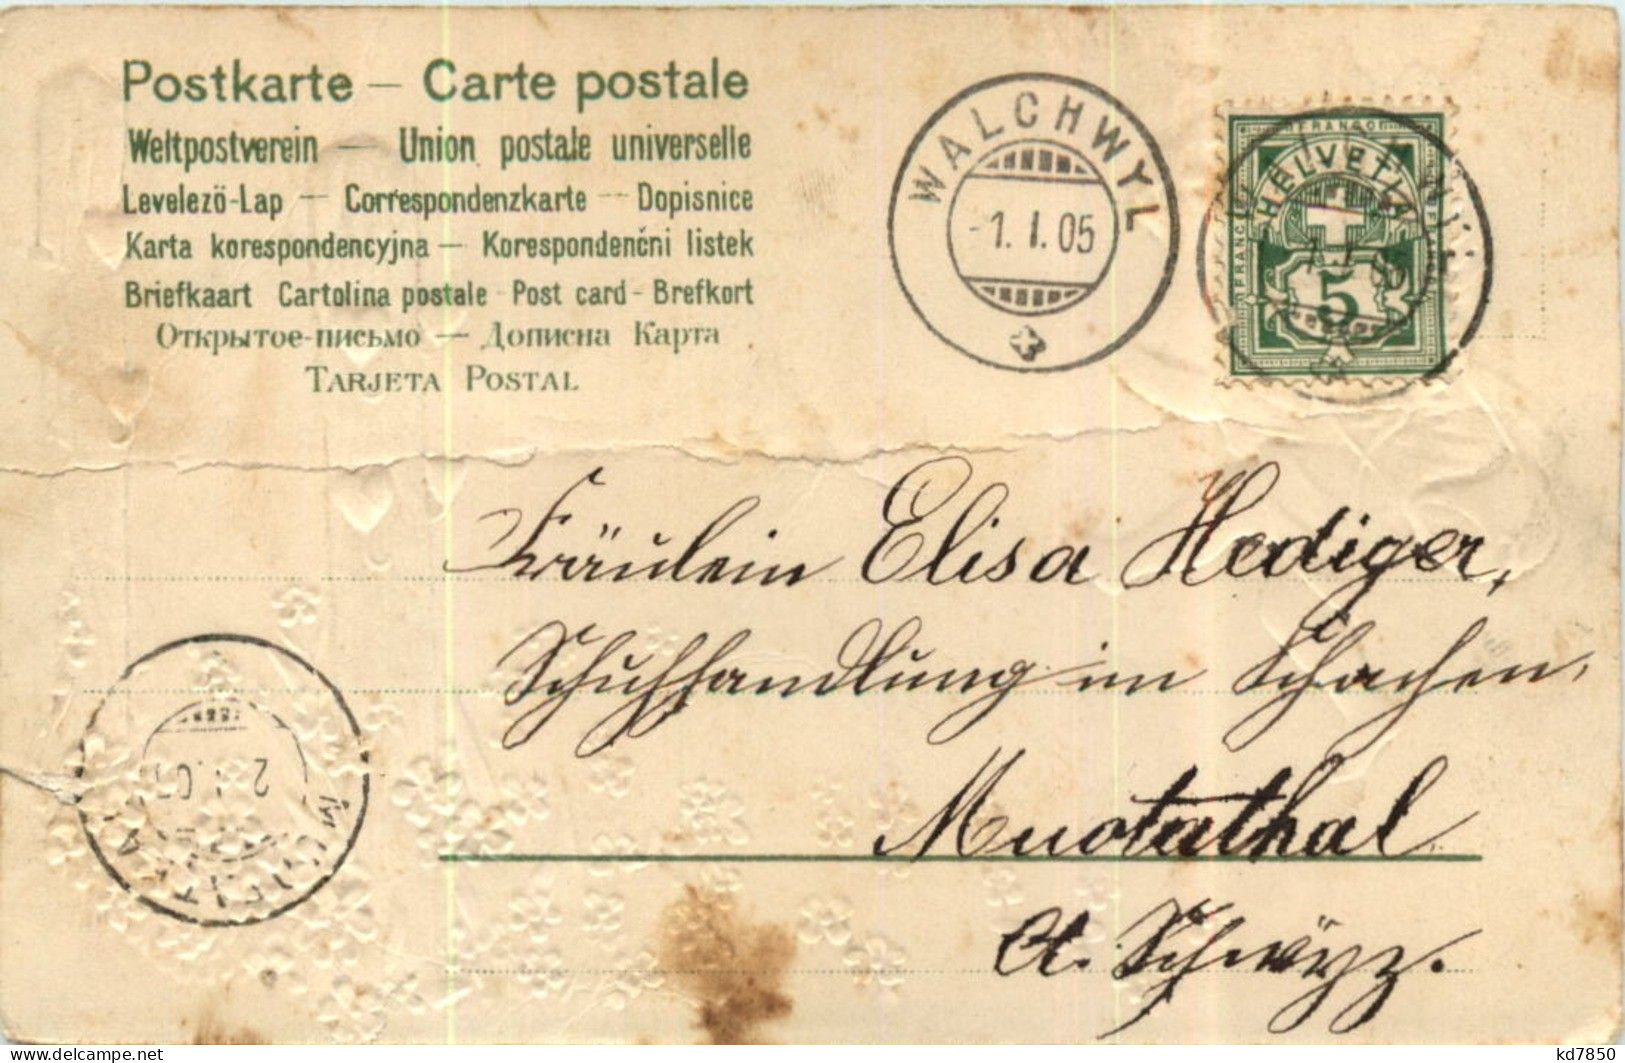 Postkarte – Carte postale
Weltpostverein — Union postale universelle
Levelező-Lap — Correspondenzkarte — Dopisnice
Karta korespondencyjna — Korespondenčni listek
Briefkaart Cartolina postale - Post card - Brefkort
Открытое-письмо — Дописна Карта
TARJETA POSTAL
WALCHWYL
-1. I. 05
FRANCO
HELVETIA
5
Fräulein Elisa Hediger,
Schuhhandlung im Schachen,
Muotathal
Ct. Schwÿz.
delcampe.net
kd7850